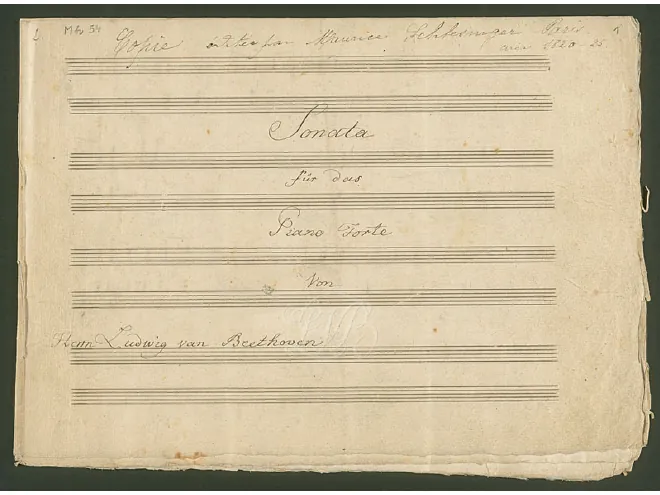 1 Mh 54 Copie Maurice Schlesinger Paris 1
1820 25
Sonata
für das
Piano Forte
Von
Herrn Ludwig van Beethoven